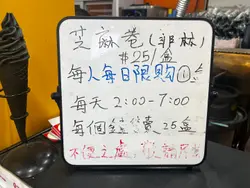 芝麻蒼(非林)
$25/盒
每人每日限購①盒
每天 2:00-7:00
每個 費 25盒
不便之處 敬請見諒